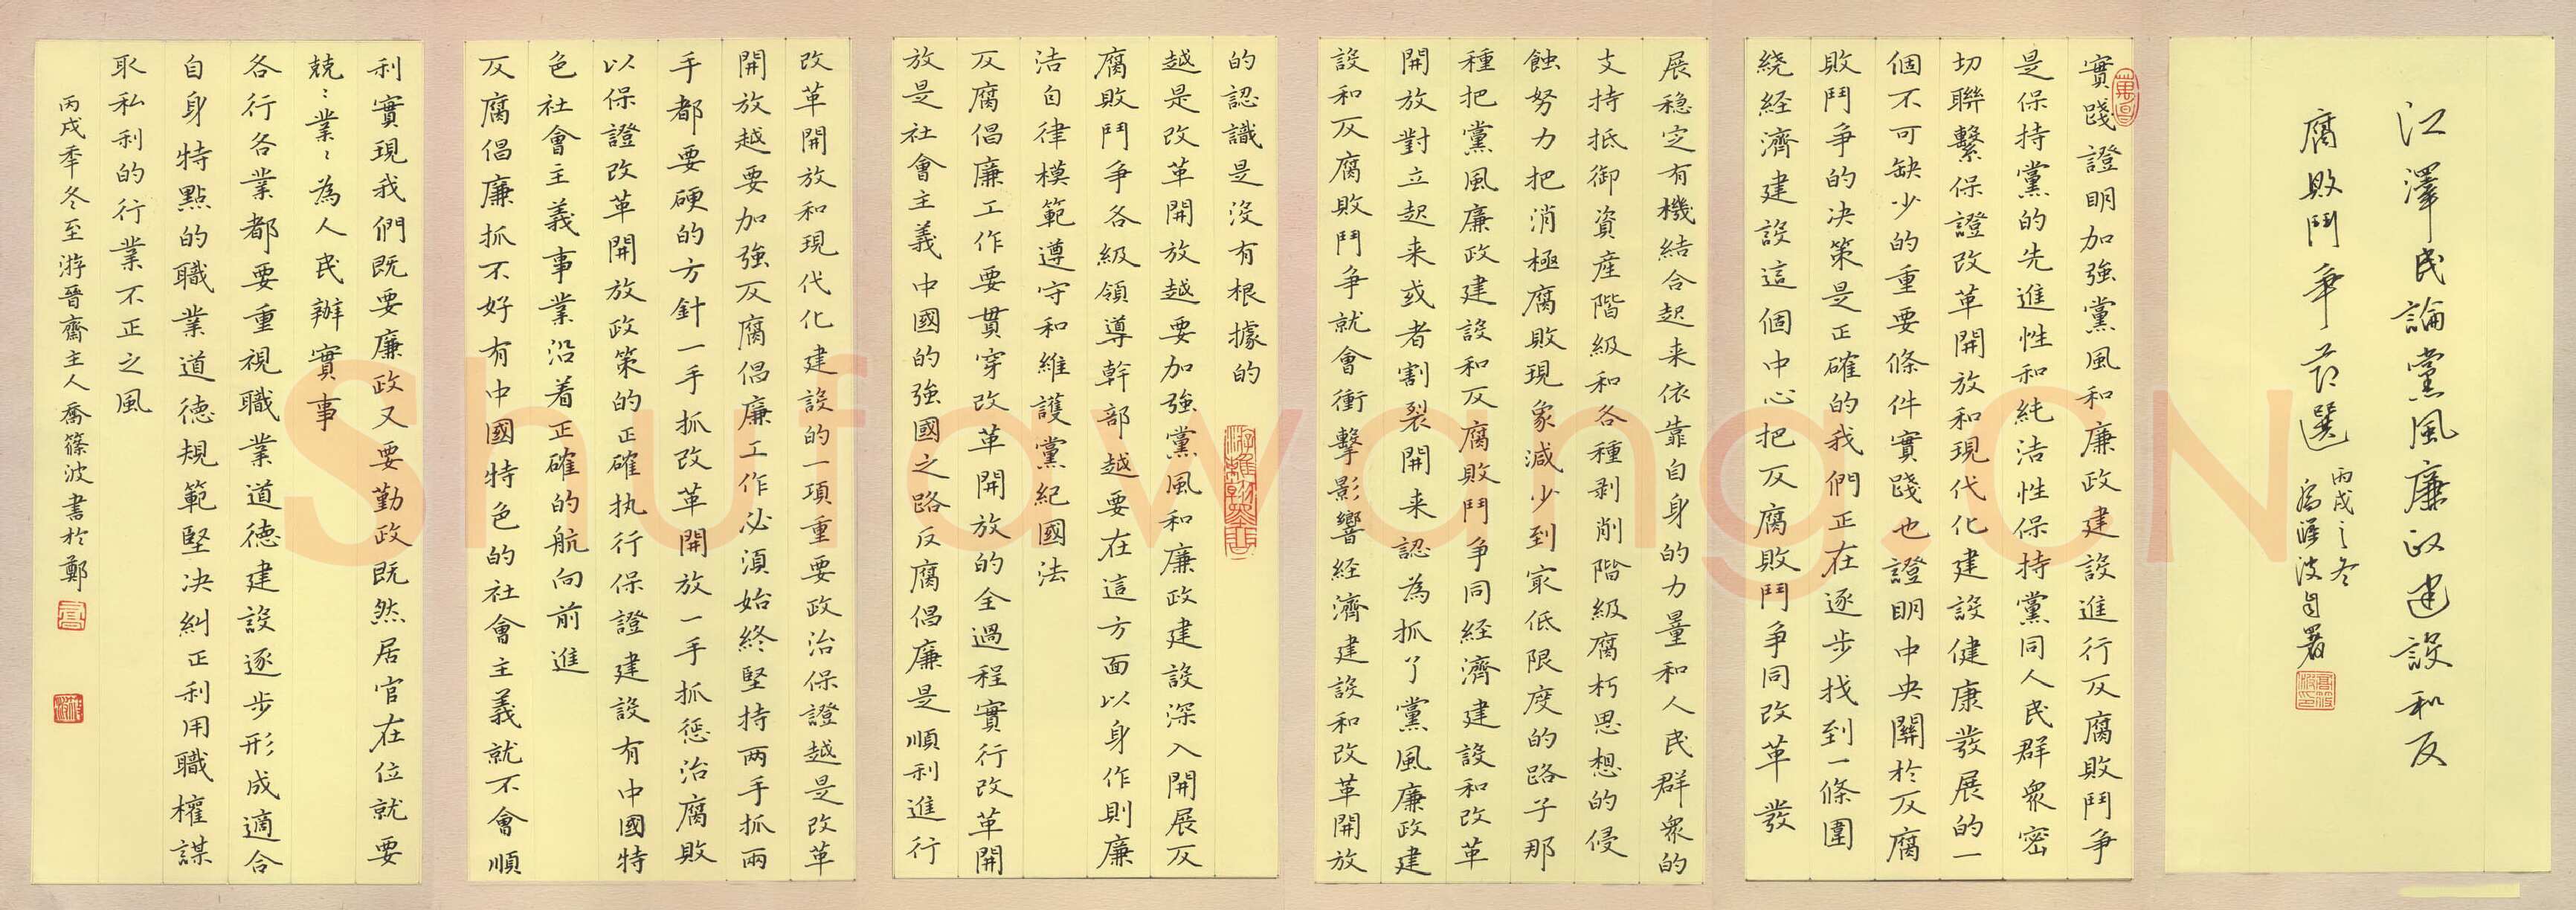 江澤民論黨風廉政建設和反
腐敗鬥爭節選
丙戌之冬
喬篠波自署
實踐證明加強黨風和廉政建設進行反腐敗鬥爭
是保持黨的先進性和純洁性保持黨同人民群衆密
切聯繫保證改革開放和現代化建設健康發展的一
個不可缺少的重要條件實踐也證明中央關於反腐
敗鬥爭的决策是正確的我們正在逐步找到一條圍
繞経濟建設這個中心把反腐敗鬥爭同改革發
展穩定有機結合起来依靠自身的力量和人民群衆的
支持抵御資産階級和各種剥削階級腐朽思想的侵
蝕努力把消極腐敗現象減少到冣低限度的路子那
種把黨風廉政建設和反腐敗鬥爭同経濟建設和改革
開放對立起来或者割裂開来認為抓了黨風廉政建
設和反腐敗鬥爭就會衝擊影響経濟建設和改革開放
的認識是沒有根據的
越是改革開放越要加強黨風和廉政建設深入開展反
腐敗鬥爭各級領導幹部越要在這方面以身作則廉
洁自律模範遵守和維護黨紀國法
反腐倡廉工作要貫穿改革開放的全過程實行改革開
放是社會主義中國的強國之路反腐倡廉是順利進行
改革開放和現代化建設的一項重要政治保證越是改革
開放越要加強反腐倡廉工作必須始終堅持两手抓兩
手都要硬的方針一手抓改革開放一手抓懲治腐敗
以保證改革開放政策的正確执行保證建設有中國特
色社會主義事業沿着正確的航向前進
反腐倡廉抓不好有中國特色的社會主義就不會順
利實現我們既要廉政又要勤政既然居官在位就要
兢〻業〻為人民辦實事
各行各業都要重視職業道德建設逐步形成適合
自身特點的職業道德規範堅决糾正利用職權謀
取私利的行業不正之風
丙戌季冬至游晉齋主人喬篠波書於鄭
Shufawang.CN